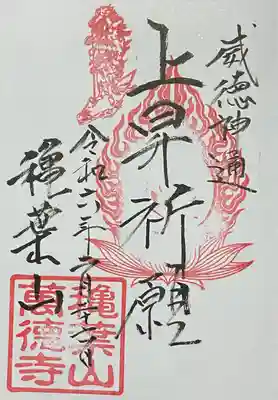 威徳神通
上昇祈願
令和六年二月
穐葉山
穐葉山
萬徳寺